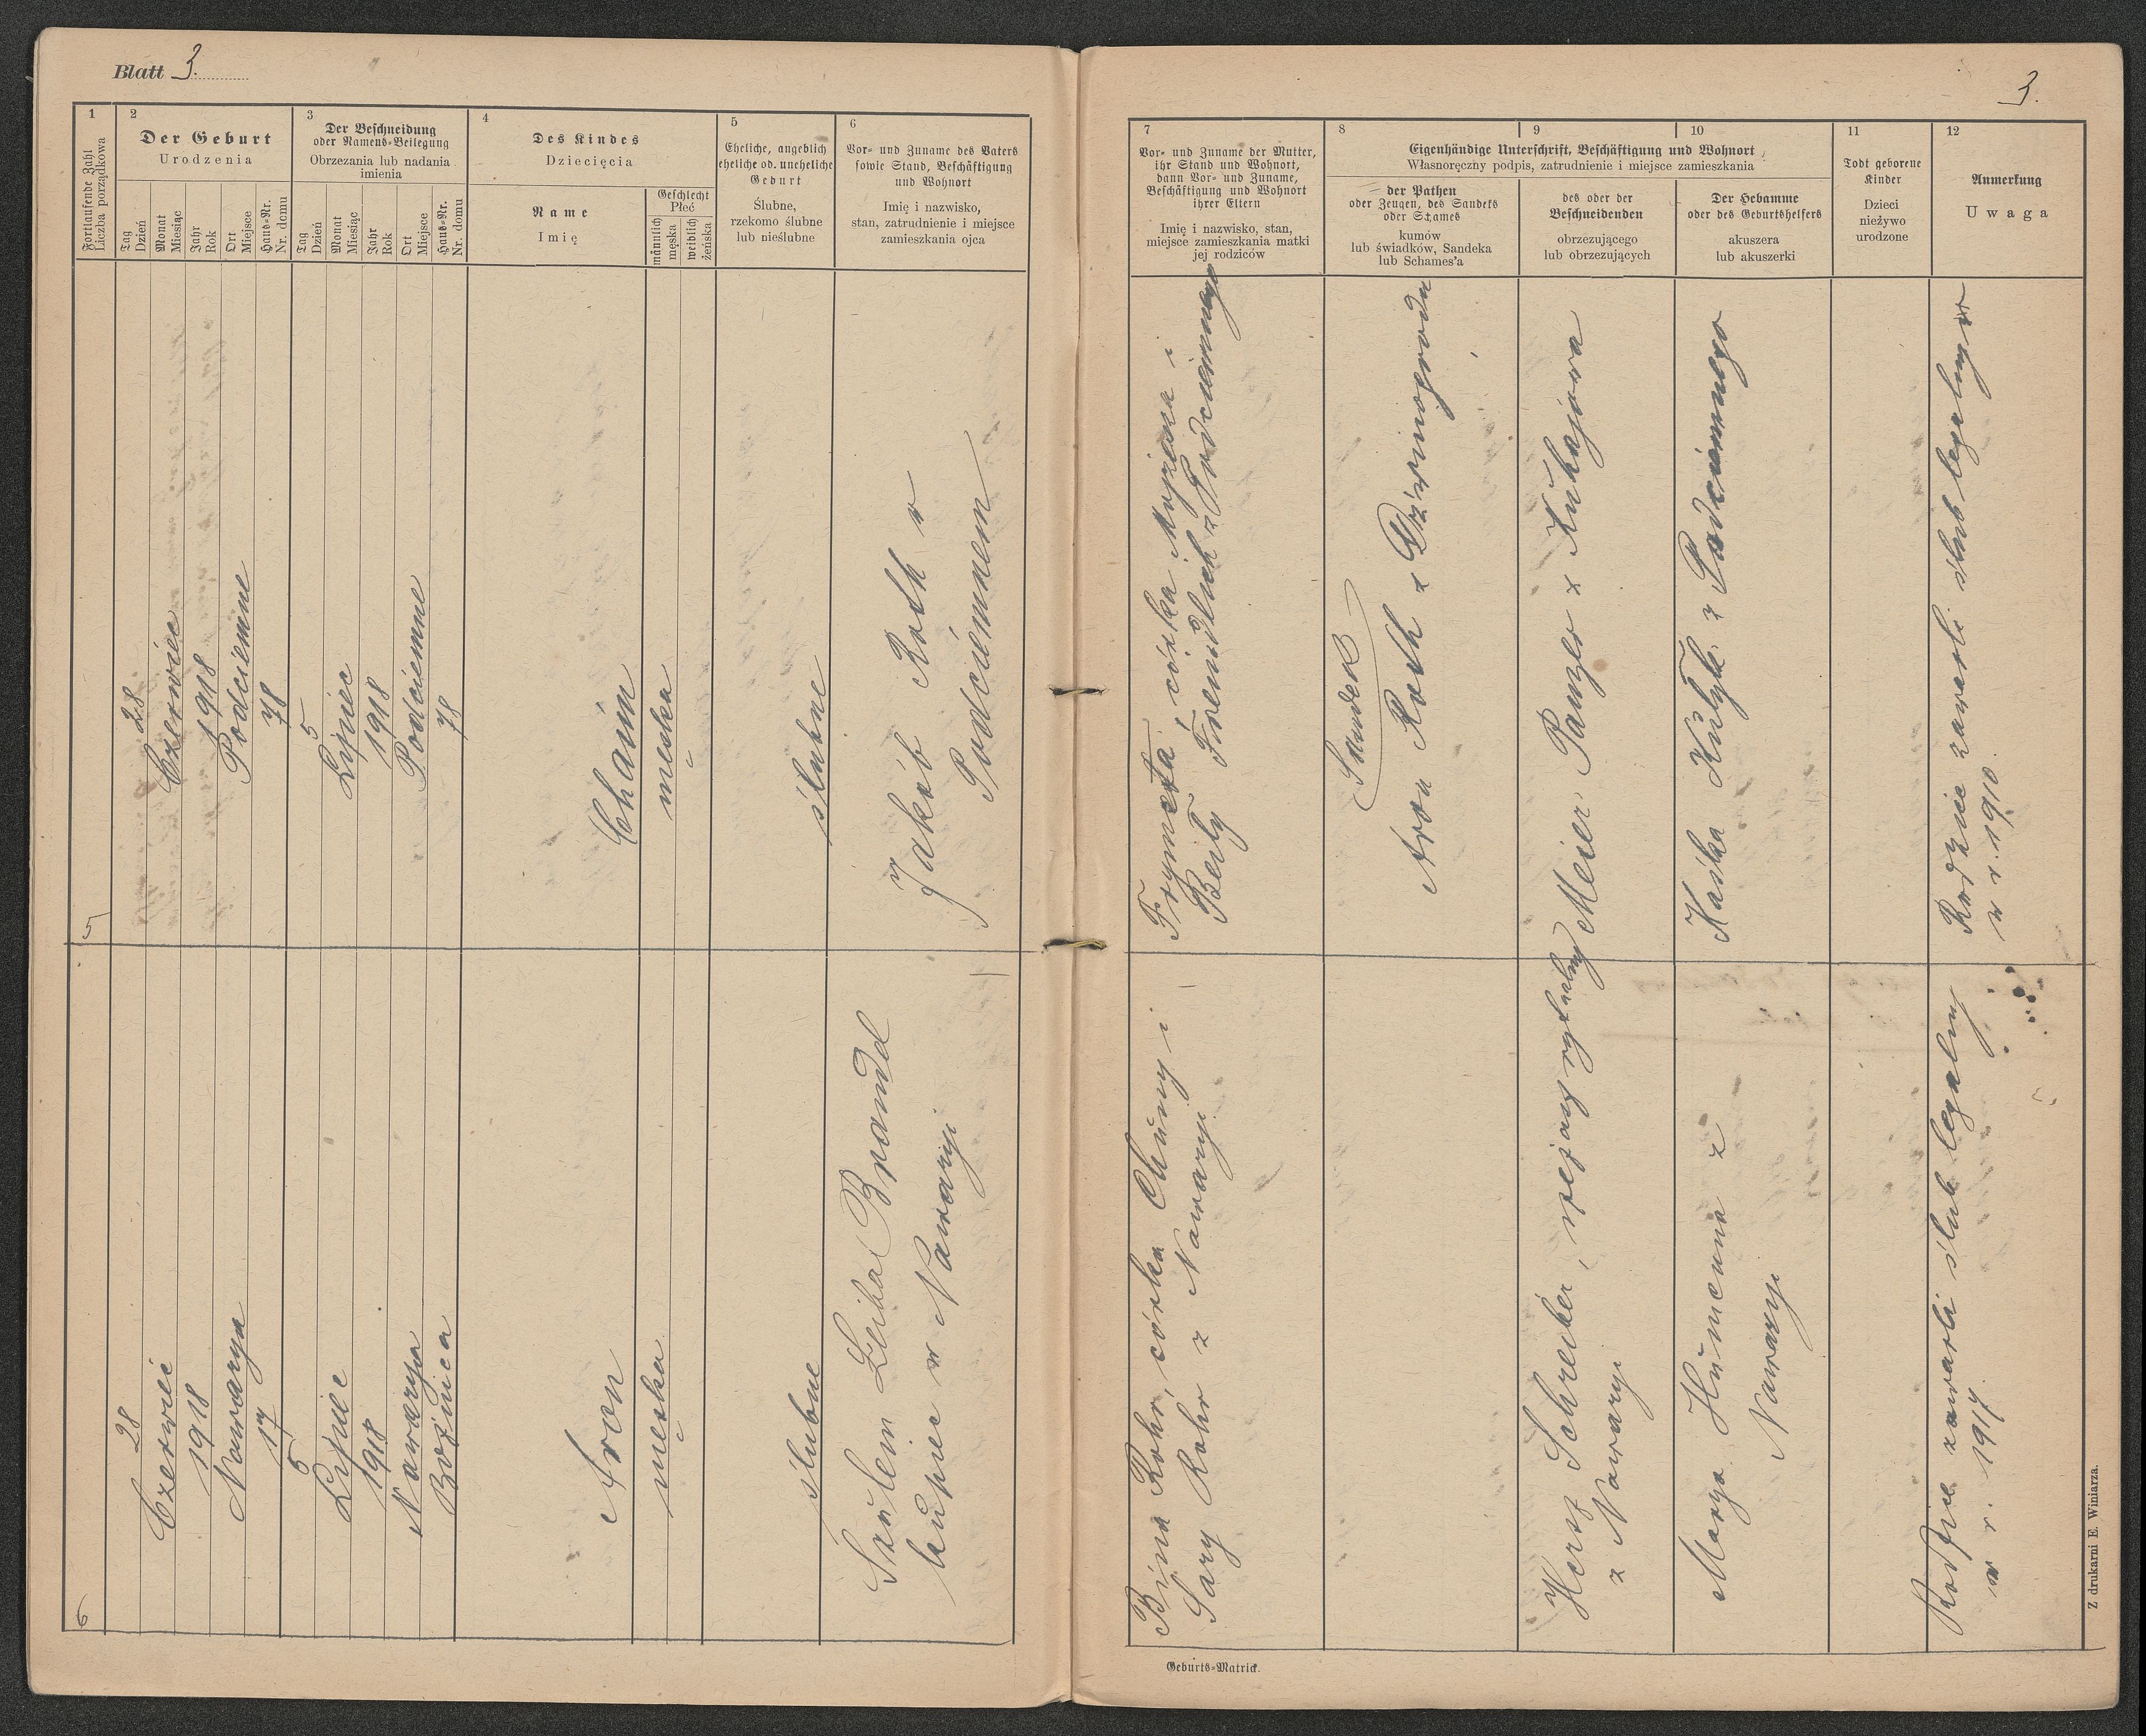 Blatt 3.
1
Fortlaufende Zahl
Liczba porządkowa
2
Der Geburt
Urodzenia
Tag
Dzień
Monat
Miesiąc
Jahr
Rok
Ort
Miejsce
Haus-Nr.
Nr. domu
3
Der Beschneidung
oder Namens-Beilegung
Obrzezania lub nadania
imienia
Tag
Dzień
Monat
Miesiąc
Jahr
Rok
Ort
Miejsce
Haus-Nr.
Nr. domu
4
Des Kindes
Dziecięcia
Name
Imię
Geschlecht
Płeć
männlich
męska
weiblich
żeńska
5
Eheliche, angeblich
eheliche od. uneheliche
Geburt
Ślubne,
rzekomo ślubne
lub nieślubne
6
Vor- und Zuname des Vaters
sowie Stand, Beschäftigung
und Wohnort
Imię i nazwisko,
stan, zatrudnienie i miejsce
zamieszkania ojca
5
28
Czerwiec
1918
Podciemne
78
5
Lipiec
1918
Podciemne
78
Chaim
męska
ślubne
Jakób Roth w
Podciemnem
6
28
Czerwiec
1918
Nawarya
17
5
Lipiec
1918
Nawarya
Bożnica
Aron
męska
ślubne
Szulem Leiba Brandd
kupiec w Nawaryi
3.
7
Vor- und Zuname der Mutter,
ihr Stand und Wohnort,
dann Vor- und Zuname,
Beschäftigung und Wohnort
ihrer Eltern
Imię i nazwisko, stan,
miejsce zamieszkania matki
jej rodziców
Eigenhändige Unterschrift, Beschäftigung und Wohnort
Własnoręczny podpis, zatrudnienie i miejsce zamieszkania
8
der Pathen
oder Zeugen, des Sandeks
oder Schames
kumów
lub świadków, Sandeka
lub Schames'a
9
des oder der
Beschneidenden
obrzezującego
lub obrzezujących
10
Der Hebamme
oder des Geburtshelfers
akuszera
lub akuszerki
11
Todt geborene
Kinder
Dzieci
nieżywo
urodzone
12
Anmerkung
Uwaga
Frymeta, córka Mojżesza i
Beily Freundlich z Podciemnego
Sandek
Aron Roth z Dźwinogroda
Meier Panzer z Kuhajowa
Kaśka z Podciemnego
Rodzice zawarli ślub legalny w
w r. 1910.
Bina Rohr, córka Chuny i
Sary Rohr z Nawaryi
Hersz Schreiber, rzezak rytualny
z Nawaryi
Marya Humenna z
Nawaryi
Rodzice zawarli ślub legalny
w r. 1917.
Geburts-Matrick.
Z drukarni E. Winiarza.